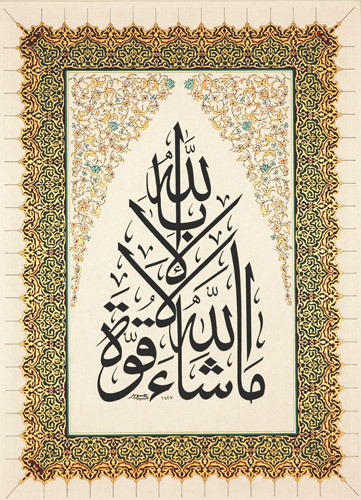 ما شاء الله لا قوة إلا بالله
١٤٢٧